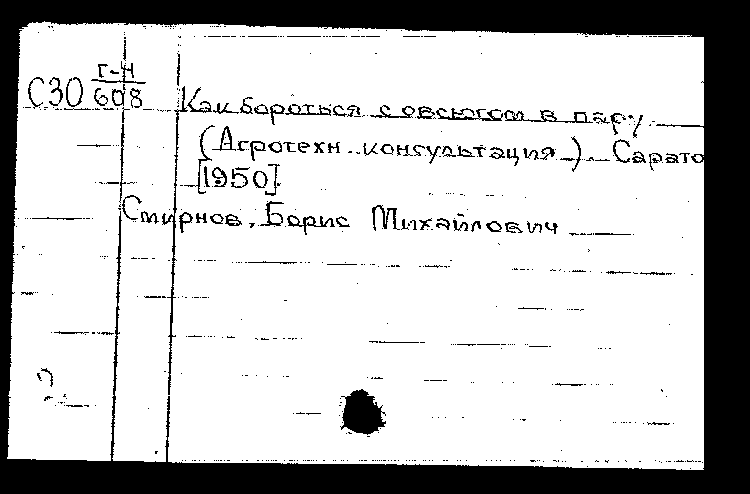 Г-4
С30 608 Как бороться с овсюгом в пару
(Агротехн. консультация). Сарато
[1950].
Смирнов, Борис Михайлович
2